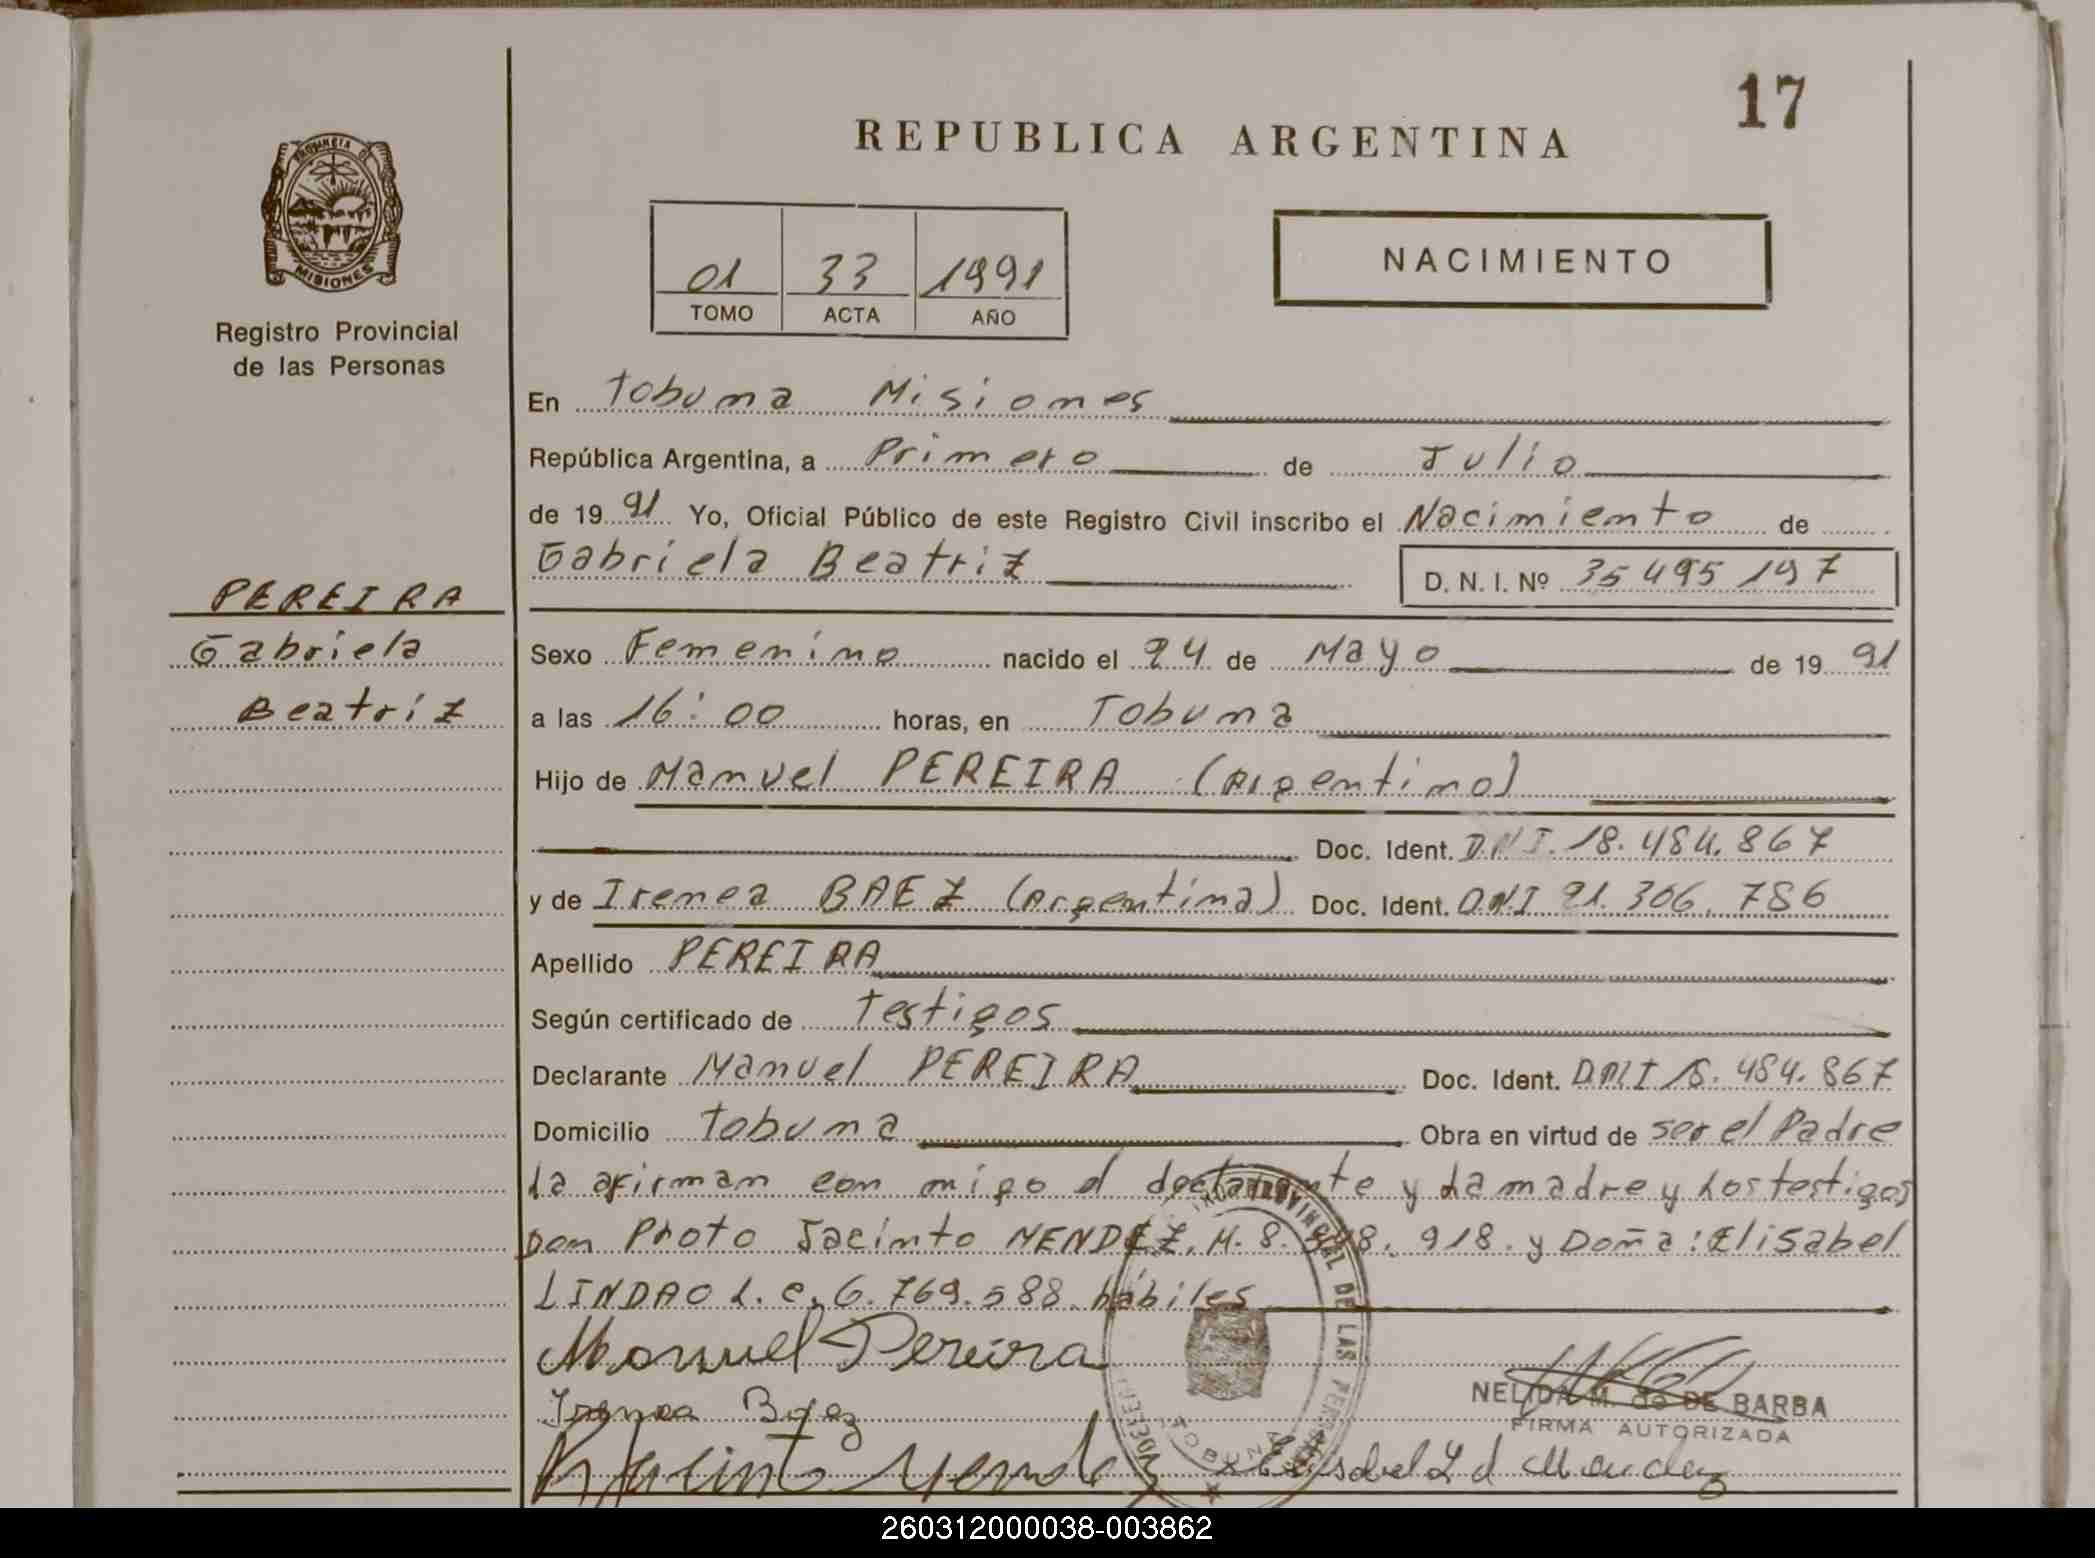 17
REPUBLICA ARGENTINA
PROVINCIA DE
MISIONES
Registro Provincial
de las Personas
01 33 1991
TOMO ACTA AÑO
NACIMIENTO
En Tobuna Misiones
República Argentina, a Primero de Julio
de 19 91 Yo, Oficial Público de este Registro Civil inscribo el Nacimiento de
Gabriela Beatriz D. N. I. Nº 35495197
PEREIRA
Gabriela
Beatriz
Sexo Femenino nacido el 24 de Mayo de 19 91
a las 16:00 horas, en Tobuna
Hijo de Manuel PEREIRA (Argentino)
Doc. Ident. DNI. 18.484.867
y de Irenea BAEZ (Argentina) Doc. Ident. DNI 21.306.786
Apellido PEREIRA
Según certificado de Testigos
Declarante Manuel PEREIRA Doc. Ident. DNI 18.484.867
Domicilio Tobuna Obra en virtud de ser el Padre
La afirman con migo el declarante y La madre y Los testigos
Don Proto Jacinto MENDEZ, M. 8. 918. y Doña: Elisabel
LINDAO L. C. 6.769.588 hábiles
Manuel Pereira
Irenea Baez
NELIDA M. de DE BARBA
FIRMA AUTORIZADA
PROVINCIAL DE LAS
TOBUNA
Jacinto Mendez Elisabel L d Mendez
260312000038-003862